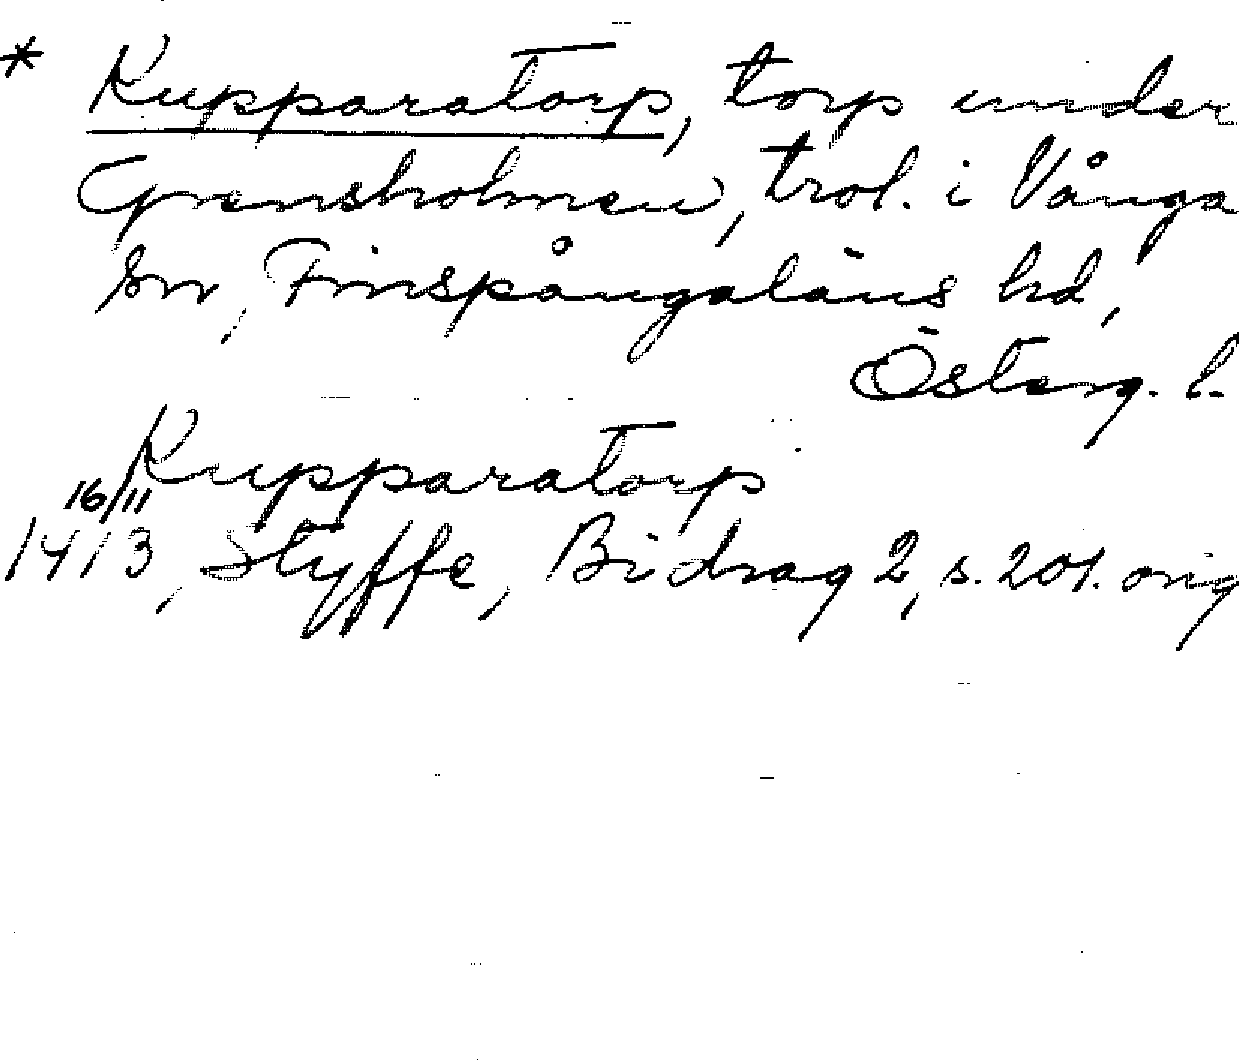 * Kupparatorp, torp under
Grensholmen, trol. i Vånga
sn, Finspångaläns hd,
Österg. l.
Kupparatorp
16/11
1413, Styffe, Bidrag 2, s. 201. orig